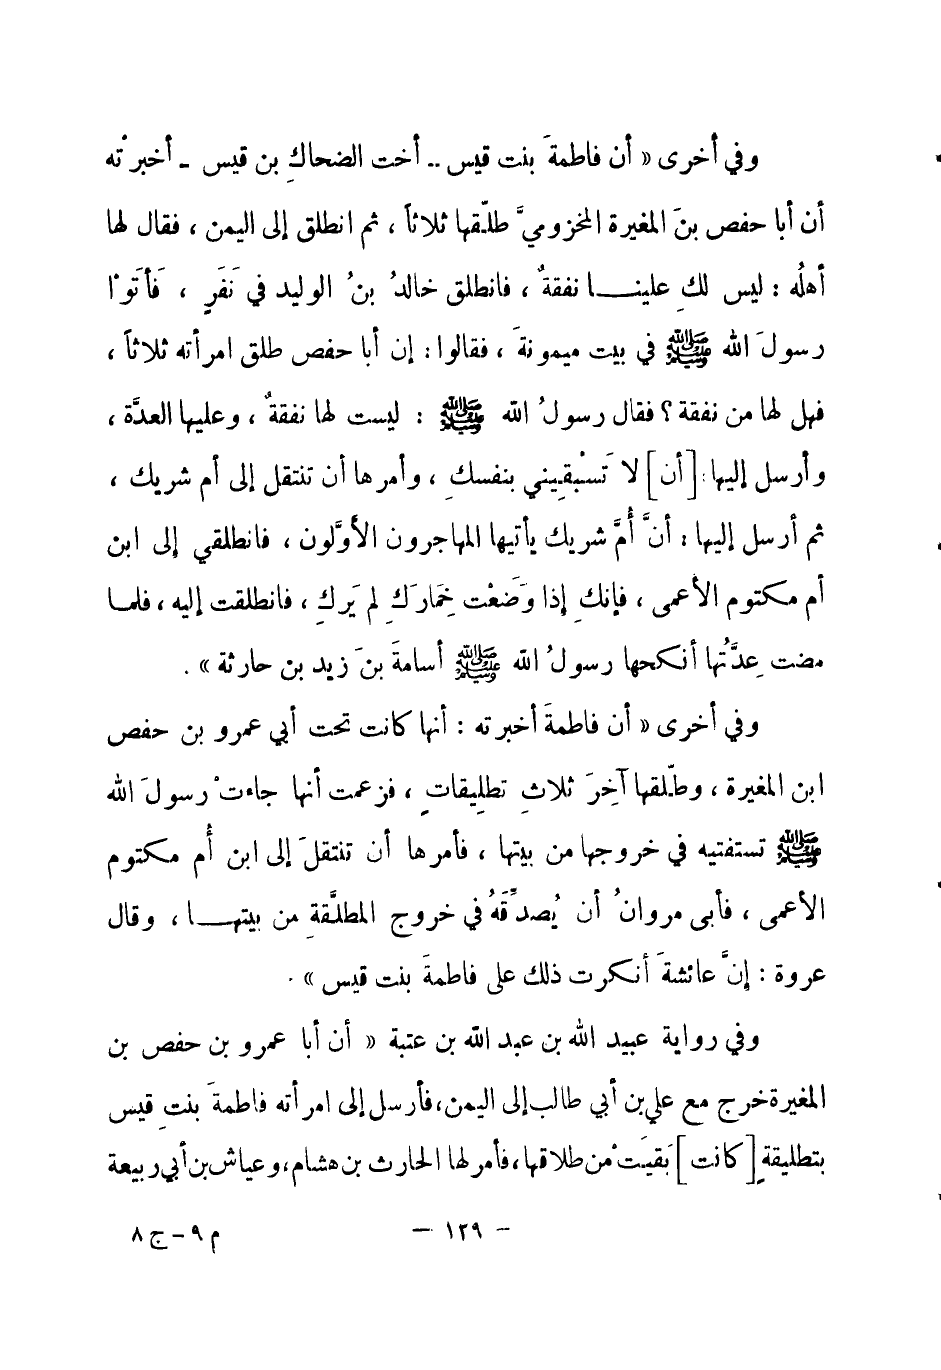 وفي أخرى « أن فاطمةَ بنت قيس .. أخت الضحاكِ بن قيس - أخبرتْه
أن أبا حفص بنَ المغيرة المخزوميَّ طلّقها ثلاثاً ، ثم انطلق إلى اليمن ، فقال لها
أهلُه : ليس لكِ علينا نفقةٌ ، فانطلق خالدُ بنُ الوليد في نَفَرٍ ، فَأَتَوْا
رسولَ الله ﷺ في بيت ميمونةَ ، فقالوا : إن أبا حفص طلق امرأته ثلاثاً ،
فهل لها من نفقة ؟ فقال رسولُ الله ﷺ : ليست لها نفقةٌ ، وعليها العدَّة ،
وأرسل إليها : [أن] لا تَسْبقِيني بنفسكِ ، وأمرها أن تنتقل إلى أم شريك ،
ثم أرسل إليها : أنَّ أُمَّ شريك يأتيها المهاجرون الأوَّلون ، فانطلقي إلى ابن
أم مكتوم الأعمى ، فإنكِ إذا وَضَعْت خِمَارَكِ لم يَركِ ، فانطلقت إليه ، فلما
مضت عِدَّتُها أنكحها رسولُ الله ﷺ أسامةَ بنَ زيد بن حارثة » .
وفي أخرى « أن فاطمةَ أخبرته : أنها كانت تحت أبي عمرو بن حفص
ابن المغيرة ، وطلّقها آخِرَ ثلاثِ تطليقاتٍ ، فزعمت أنها جاءتْ رسولَ الله
ﷺ تستفتيه في خروجها من بيتها ، فأمرها أن تنتقلَ إلى ابن أُم مكتوم
الأعمى ، فأبى مروانُ أن يُصدِّقَهُ في خروج المطلَّقةِ من بيتها ، وقال
عروة : إنَّ عائشةَ أنكرت ذلك على فاطمةَ بنت قيس » .
وفي رواية عبيد الله بن عبد الله بن عتبة « أن أبا عمرو بن حفص بن
المغيرة خرج مع علي بن أبي طالب إلى اليمن ، فأرسل إلى امرأته فاطمةَ بنتِ قيس
بتطليقةٍ [كانت] بَقيَتْ من طلاقها ، فأمر لها الحارث بن هشام ، وعياش بن أبي ربيعة
- ١٢٩ -
م ٩ - ج ٨